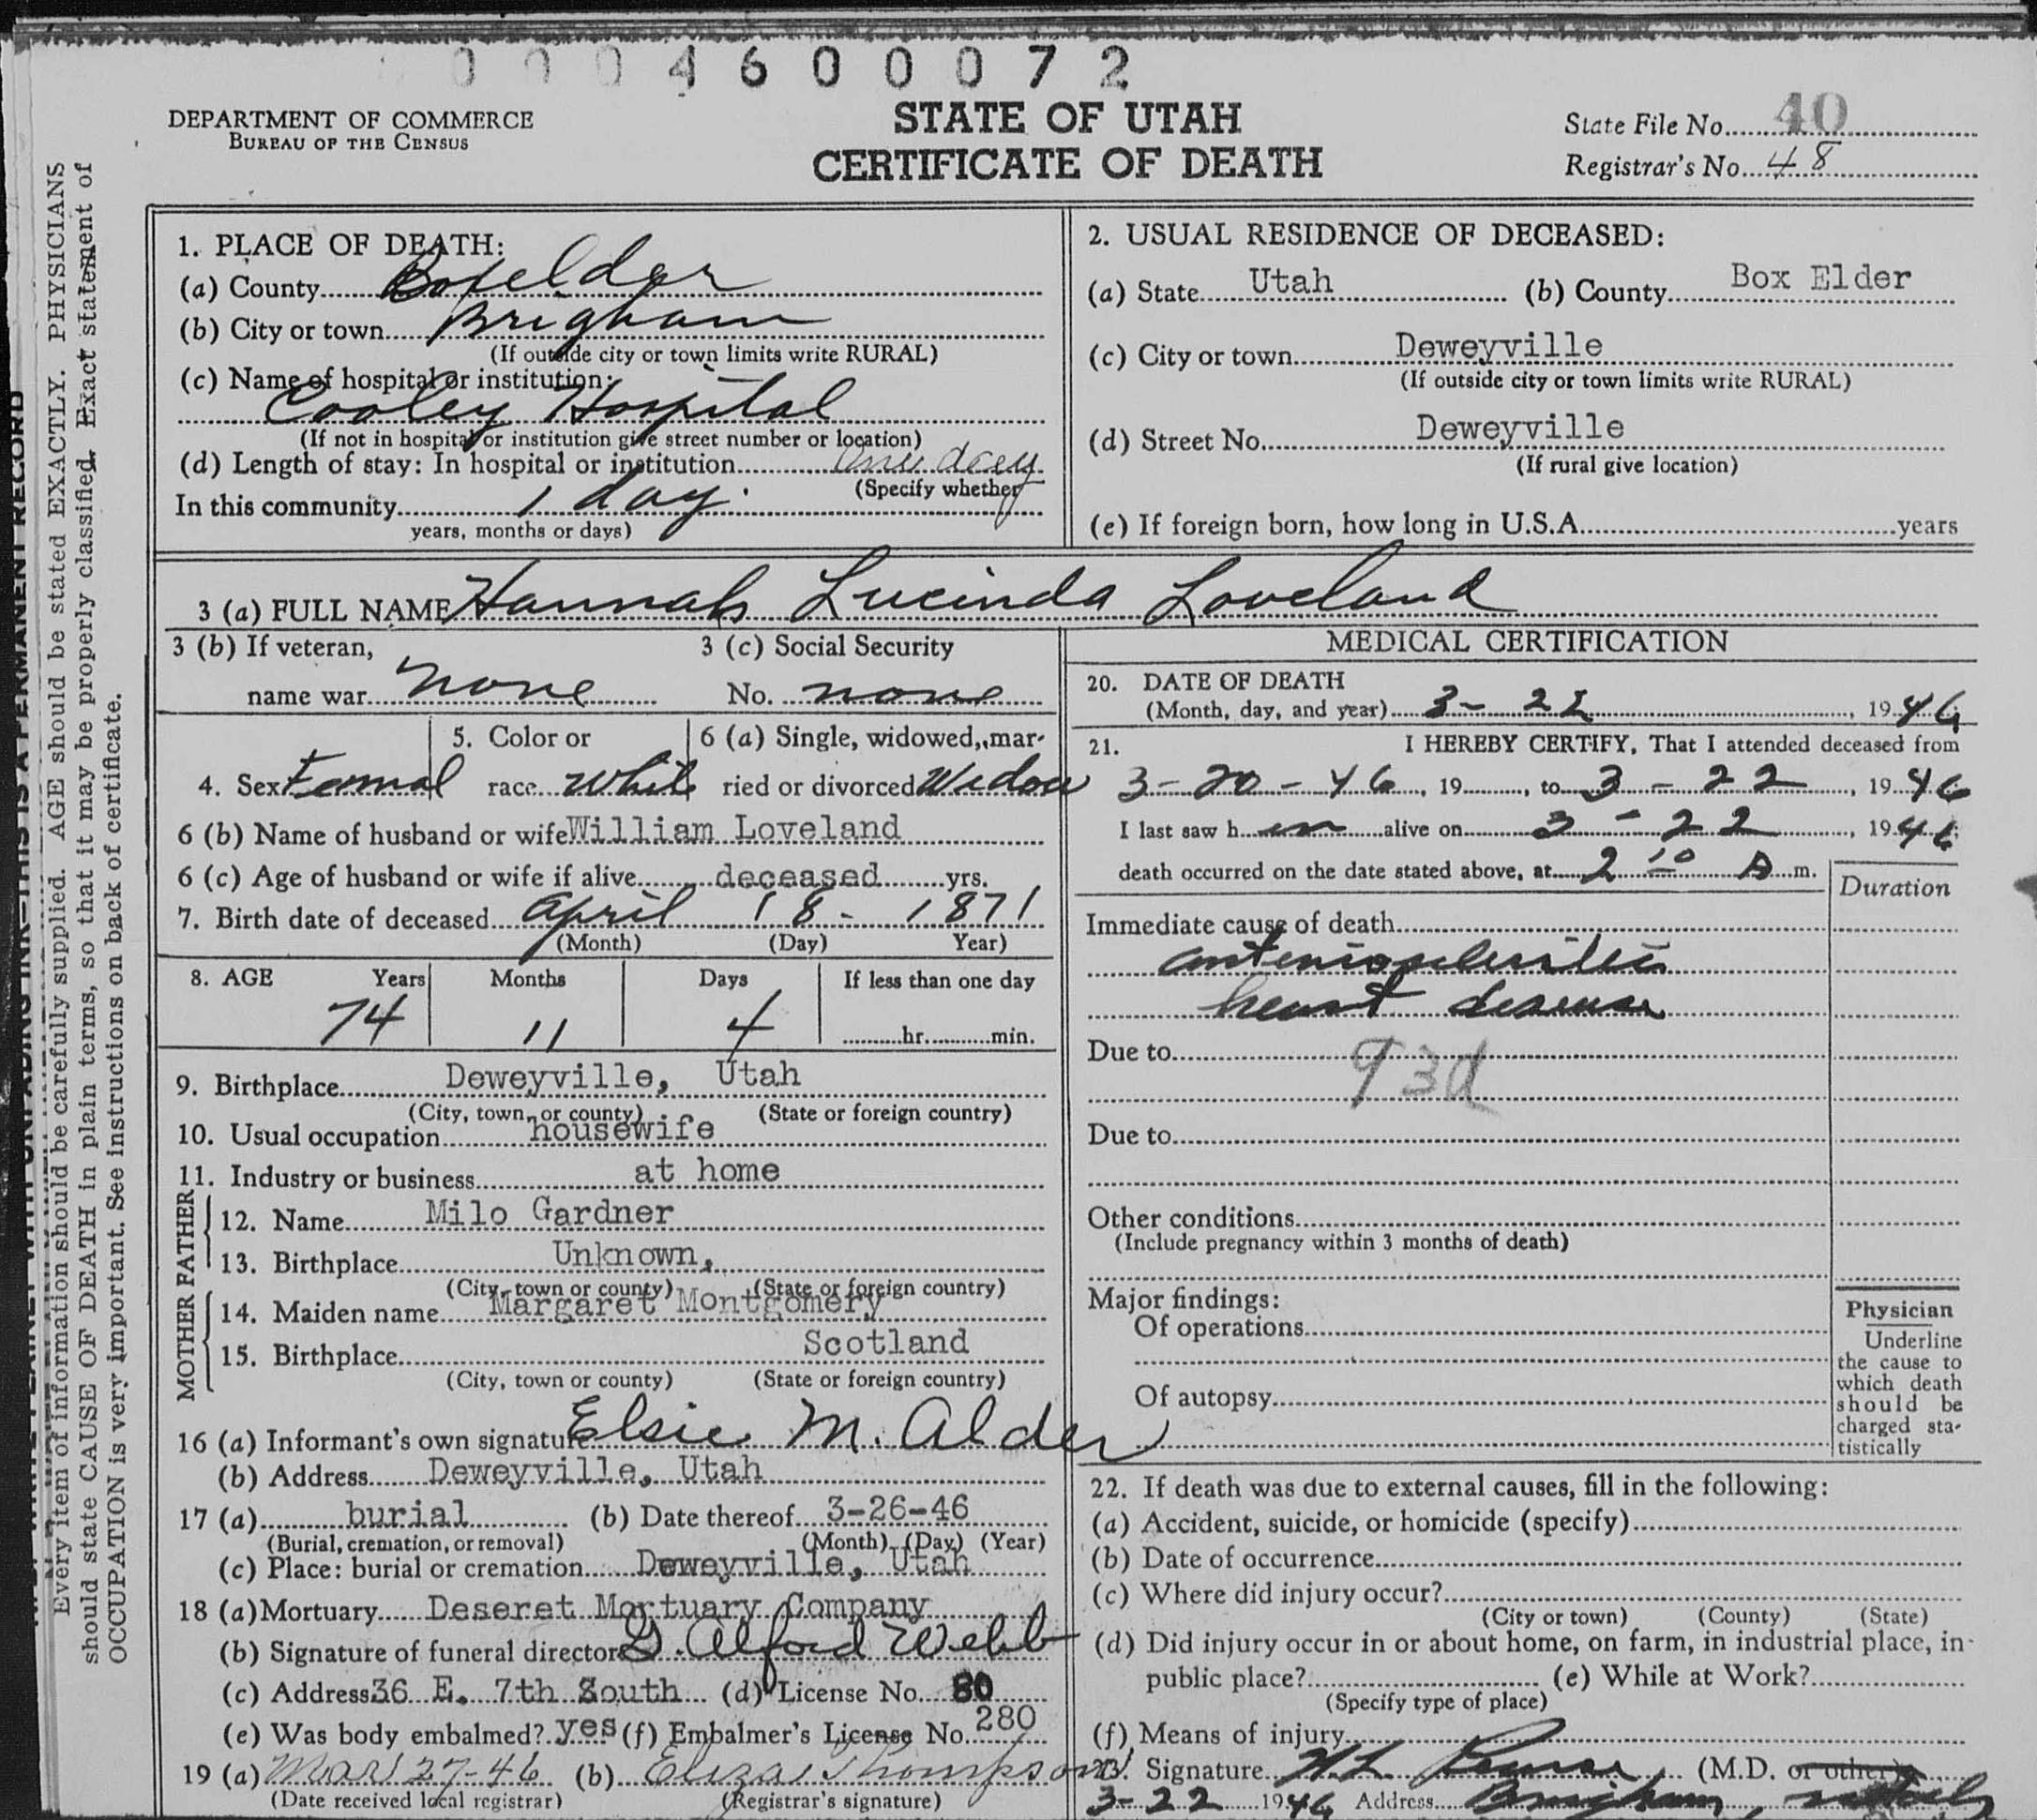 0 0 0 4 6 0 0 0 7 2
DEPARTMENT OF COMMERCE
BUREAU OF THE CENSUS
STATE OF UTAH
CERTIFICATE OF DEATH
State File No. 40
Registrar's No. 48
Every item of information should be carefully supplied. AGE should be stated EXACTLY. PHYSICIANS
should state CAUSE OF DEATH in plain terms, so that it may be properly classified. Exact statement of
OCCUPATION is very important. See instructions on back of certificate.
1. PLACE OF DEATH:
(a) County Boxelder
(b) City or town Brigham
(If outside city or town limits write RURAL)
(c) Name of hospital or institution:
Cooley Hospital
(If not in hospital or institution give street number or location)
(d) Length of stay: In hospital or institution One day
(Specify whether
In this community 1 day.
years, months or days)
2. USUAL RESIDENCE OF DECEASED:
(a) State Utah (b) County Box Elder
(c) City or town Deweyville
(If outside city or town limits write RURAL)
(d) Street No. Deweyville
(If rural give location)
(e) If foreign born, how long in U.S.A. years
3 (a) FULL NAME Hannah Lucinda Loveland
3 (b) If veteran,
name war none
3 (c) Social Security
No. none
4. Sex Femal
5. Color or
race White
6 (a) Single, widowed, mar-
ried or divorced Widow
6 (b) Name of husband or wife William Loveland
6 (c) Age of husband or wife if alive deceased yrs.
7. Birth date of deceased April 18 - 1871
(Month) (Day) Year)
8. AGE Years Months Days If less than one day
74 11 4 hr. min.
9. Birthplace Deweyville, Utah
(City, town, or county) (State or foreign country)
10. Usual occupation housewife
11. Industry or business at home
FATHER
12. Name Milo Gardner
13. Birthplace Unknown,
(City, town or county) (State or foreign country)
MOTHER
14. Maiden name Margaret Montgomery
15. Birthplace Scotland
(City, town or county) (State or foreign country)
16 (a) Informant's own signature Elsie M. Alder
(b) Address Deweyville, Utah
17 (a) burial (b) Date thereof 3-26-46
(Burial, cremation, or removal) (Month) (Day) (Year)
(c) Place: burial or cremation Deweyville, Utah
18 (a) Mortuary Deseret Mortuary Company
(b) Signature of funeral director G. Alford Webb
(c) Address 36 E. 7th South (d) License No. 80
(e) Was body embalmed? yes (f) Embalmer's License No. 280
19 (a) Mar 27-46 (b) Eliza Thompson
(Date received local registrar) (Registrar's signature)
MEDICAL CERTIFICATION
20. DATE OF DEATH
(Month, day, and year) 3 - 22, 1946
21. I HEREBY CERTIFY, That I attended deceased from
3-20-46, 19, to 3 - 22, 1946
I last saw h er alive on 3 - 22, 1946
death occurred on the date stated above, at 2 10 A m.
Duration
Immediate cause of death
arteriosclerotic
heart disease
Due to 93d
Due to
Other conditions
(Include pregnancy within 3 months of death)
Major findings:
Of operations
Of autopsy
Physician
Underline
the cause to
which death
should be
charged sta-
tistically
22. If death was due to external causes, fill in the following:
(a) Accident, suicide, or homicide (specify)
(b) Date of occurrence
(c) Where did injury occur?
(City or town) (County) (State)
(d) Did injury occur in or about home, on farm, in industrial place, in
public place? (e) While at Work?
(Specify type of place)
(f) Means of injury
23. Signature (M.D. or other)
3-22 1946 Address Brigham